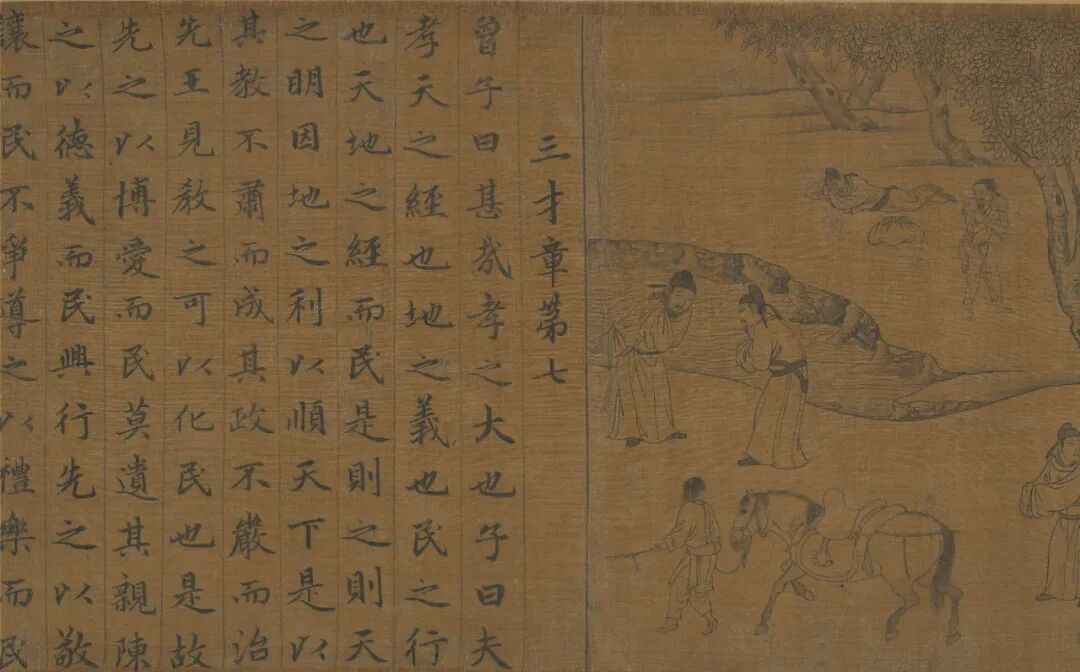 三才章第七
曾子曰甚哉孝之大也子曰夫
孝天之經也地之義也民之行
也天地之經而民是則之則天
之明因地之利以順天下是以
其教不肅而成其政不嚴而治
先王見教之可以化民也是故
先之以博愛而民莫遺其親陳
之以德義而民興行先之以敬
讓而民不爭導之以禮樂而民